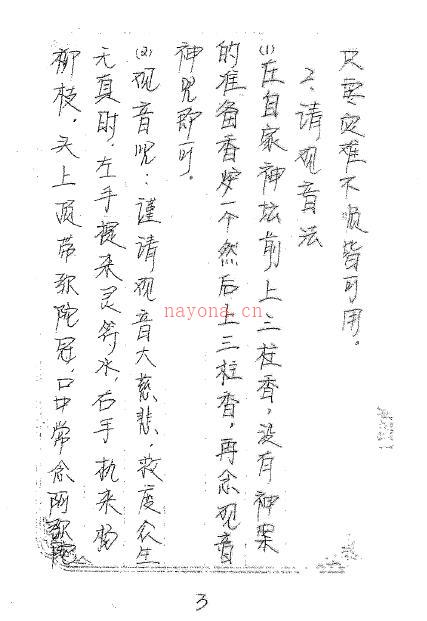 只要灾难不顺皆可用。
2、请观音法
(1)在自家神坛前上三柱香，没有神案
的准备香炉一个然后上三柱香，再念观音
神咒即可。
(2)观音咒：谨请观音大慈悲，救度众生
无真时，左手提来灵符水，右手执来杨
柳枝，头上顶带弥陀冠，口中常念阿弥陀
nayona.cn
3